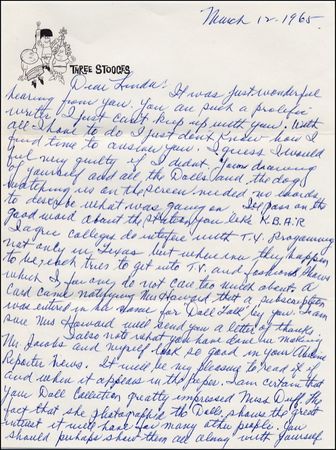 March 12-1965
THREE STOOGES
Dear Linda: It was just wonderful
hearing from you. You are such a prolific
writer, I just can't keep up with you. With
all I have to do I just don't know how I
find time to answer you. I guess I would
feel very guilty if I didn't. Your drawing
of yourself and all the Dolls and the dog
watching us on the screen needed no words
to describe what was going on. I'll pass on the
good word about the station you like K.B.A.R
I agree colleges do interfere with T.V. programing
not only in Texas but wherever they happen
to be, each tries to get into T.V. and fashion shows
which I for one do not care too much about. A
card came notifying Mrs Howard that a subscription
was entered in her name for Doll Talk by you. I am
sure Mrs Howard will send you a letter of thanks.
I also note what you have done in making
Mr Jacobs and myself look so good in your Abilene
Reporter News. It will be my pleasure to read it if
and when it appears in the paper. I am certain that
your Doll Collection greatly impressed Miss Duff. The
fact that she photographed the Dolls, shows the great
interest it will have for many other people. You
should perhaps show them all along with yourself